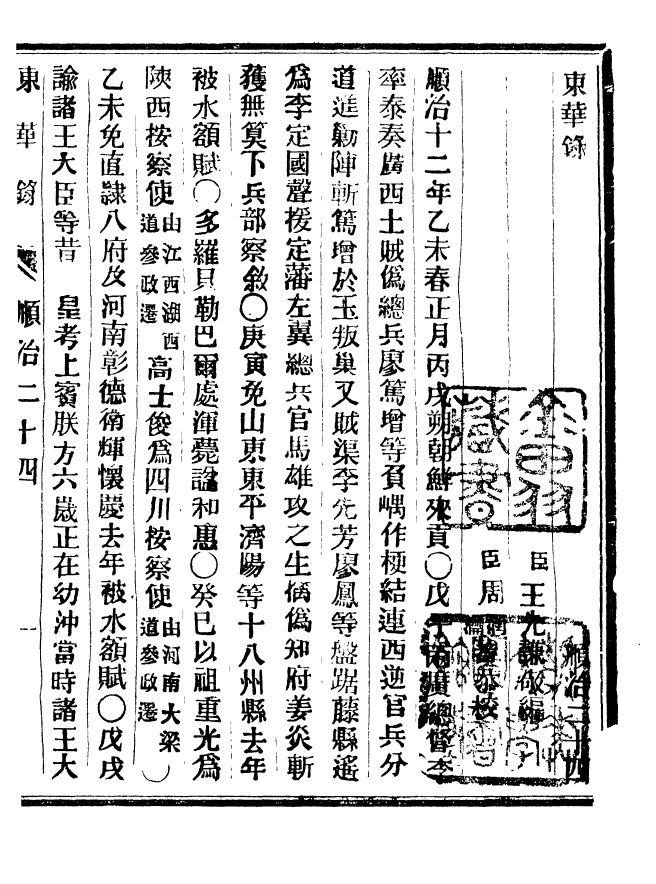 東華錄
順治二十四
臣王先謙敬編
臣周潤蕃恭校
順治十二年乙未春正月丙戌朔朝鮮來貢〇戊子兩廣總督李
率泰奏廣西土賊偽總兵廖篤增等負嵎作梗結連西逆官兵分
道進勦陣斬篤增於玉版巢又賊渠李先芳廖鳳等盤踞藤縣遙
為李定國聲援定藩左翼總兵官馬雄攻之生俑偽知府姜炎斬
獲無算下兵部察敘〇庚寅免山東東平濟陽等十八州縣去年
被水額賦〇多羅貝勒巴爾處渾薨諡和惠〇癸巳以祖重光為
陝西按察使由江西湖西道參政遷高士俊為四川按察使由河南大梁道參政遷〇
乙未免直隸八府及河南彰德衛輝懷慶去年被水額賦〇戊戌
諭諸王大臣等昔 皇考上賓朕方六歲正在幼沖當時諸王大
東華錄 順治二十四 一